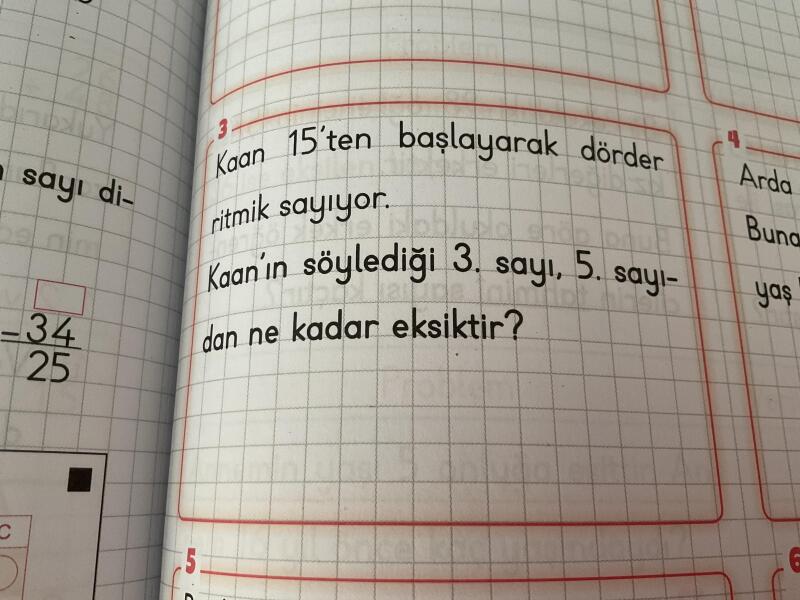 sayı di-
-34
25
C
3
Kaan 15'ten başlayarak dörder
ritmik sayıyor.
Kaan'ın söylediği 3. sayı, 5. sayı-
dan ne kadar eksiktir?
4
Arda
Buna
yaş
5
6